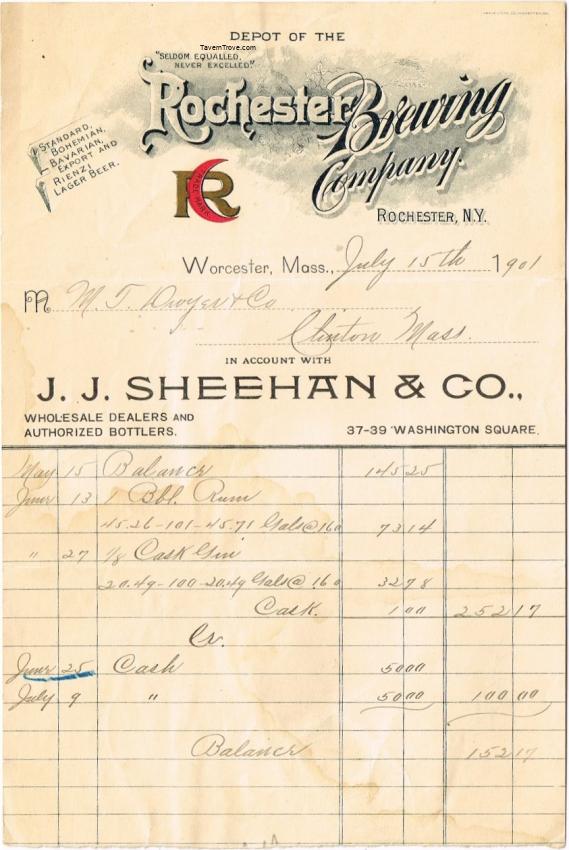 DEPOT OF THE
TavernTrove.com
"SELDOM EQUALLED,
NEVER EXCELLED."
Rochester Brewing
Company.
ROCHESTER, N.Y.
STANDARD,
BOHEMIAN,
BAVARIAN,
EXPORT AND
RIENZI
LAGER BEER.
R
TRADE MARK
WORCESTER, MASS., July 15th 1901
M M. T. Dwyer & Co
Clinton Mass.
IN ACCOUNT WITH
J. J. SHEEHAN & CO.,
WHOLESALE DEALERS AND
AUTHORIZED BOTTLERS.
37-39 WASHINGTON SQUARE.
May 15 Balance 145 25
June 13 1 Bbl. Rum
45.26-101-45.71 Gals @ 160 73 14
" 27 1/8 Cask Gin
20.49-100-20.49 Gals @ 1.60 32 78
Cask. 1 00 252 17
Cr.
June 25 Cash 50 00
July 9 " 50 00 100 00
Balance 152 17